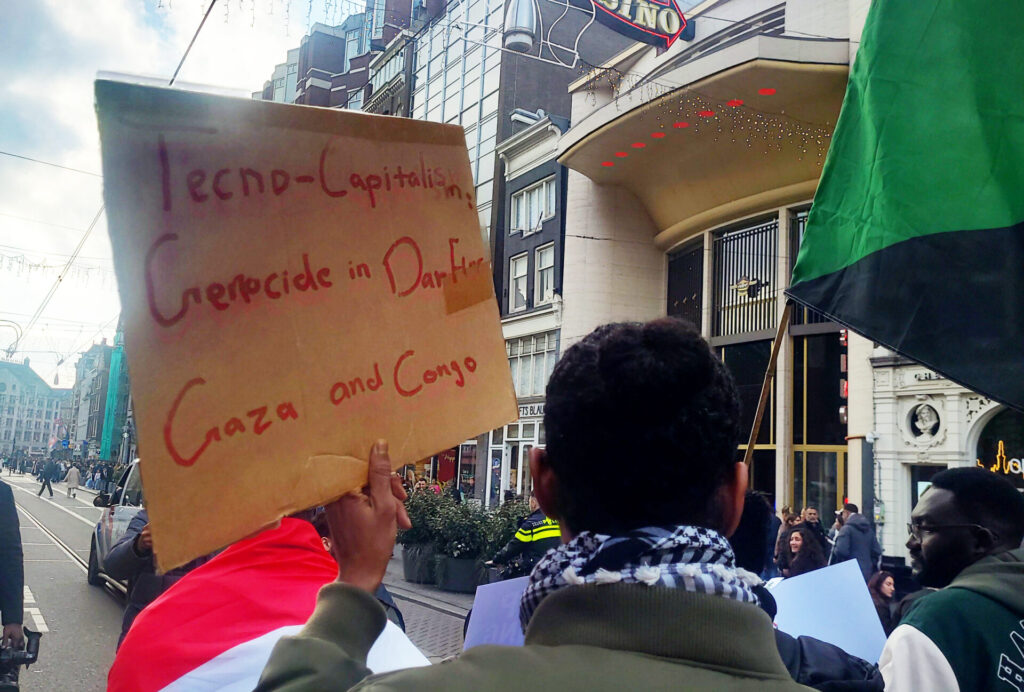 SINO
Tecno-Capitalism:
Genocide in Darfur
Gaza and Congo
FTS BLAU